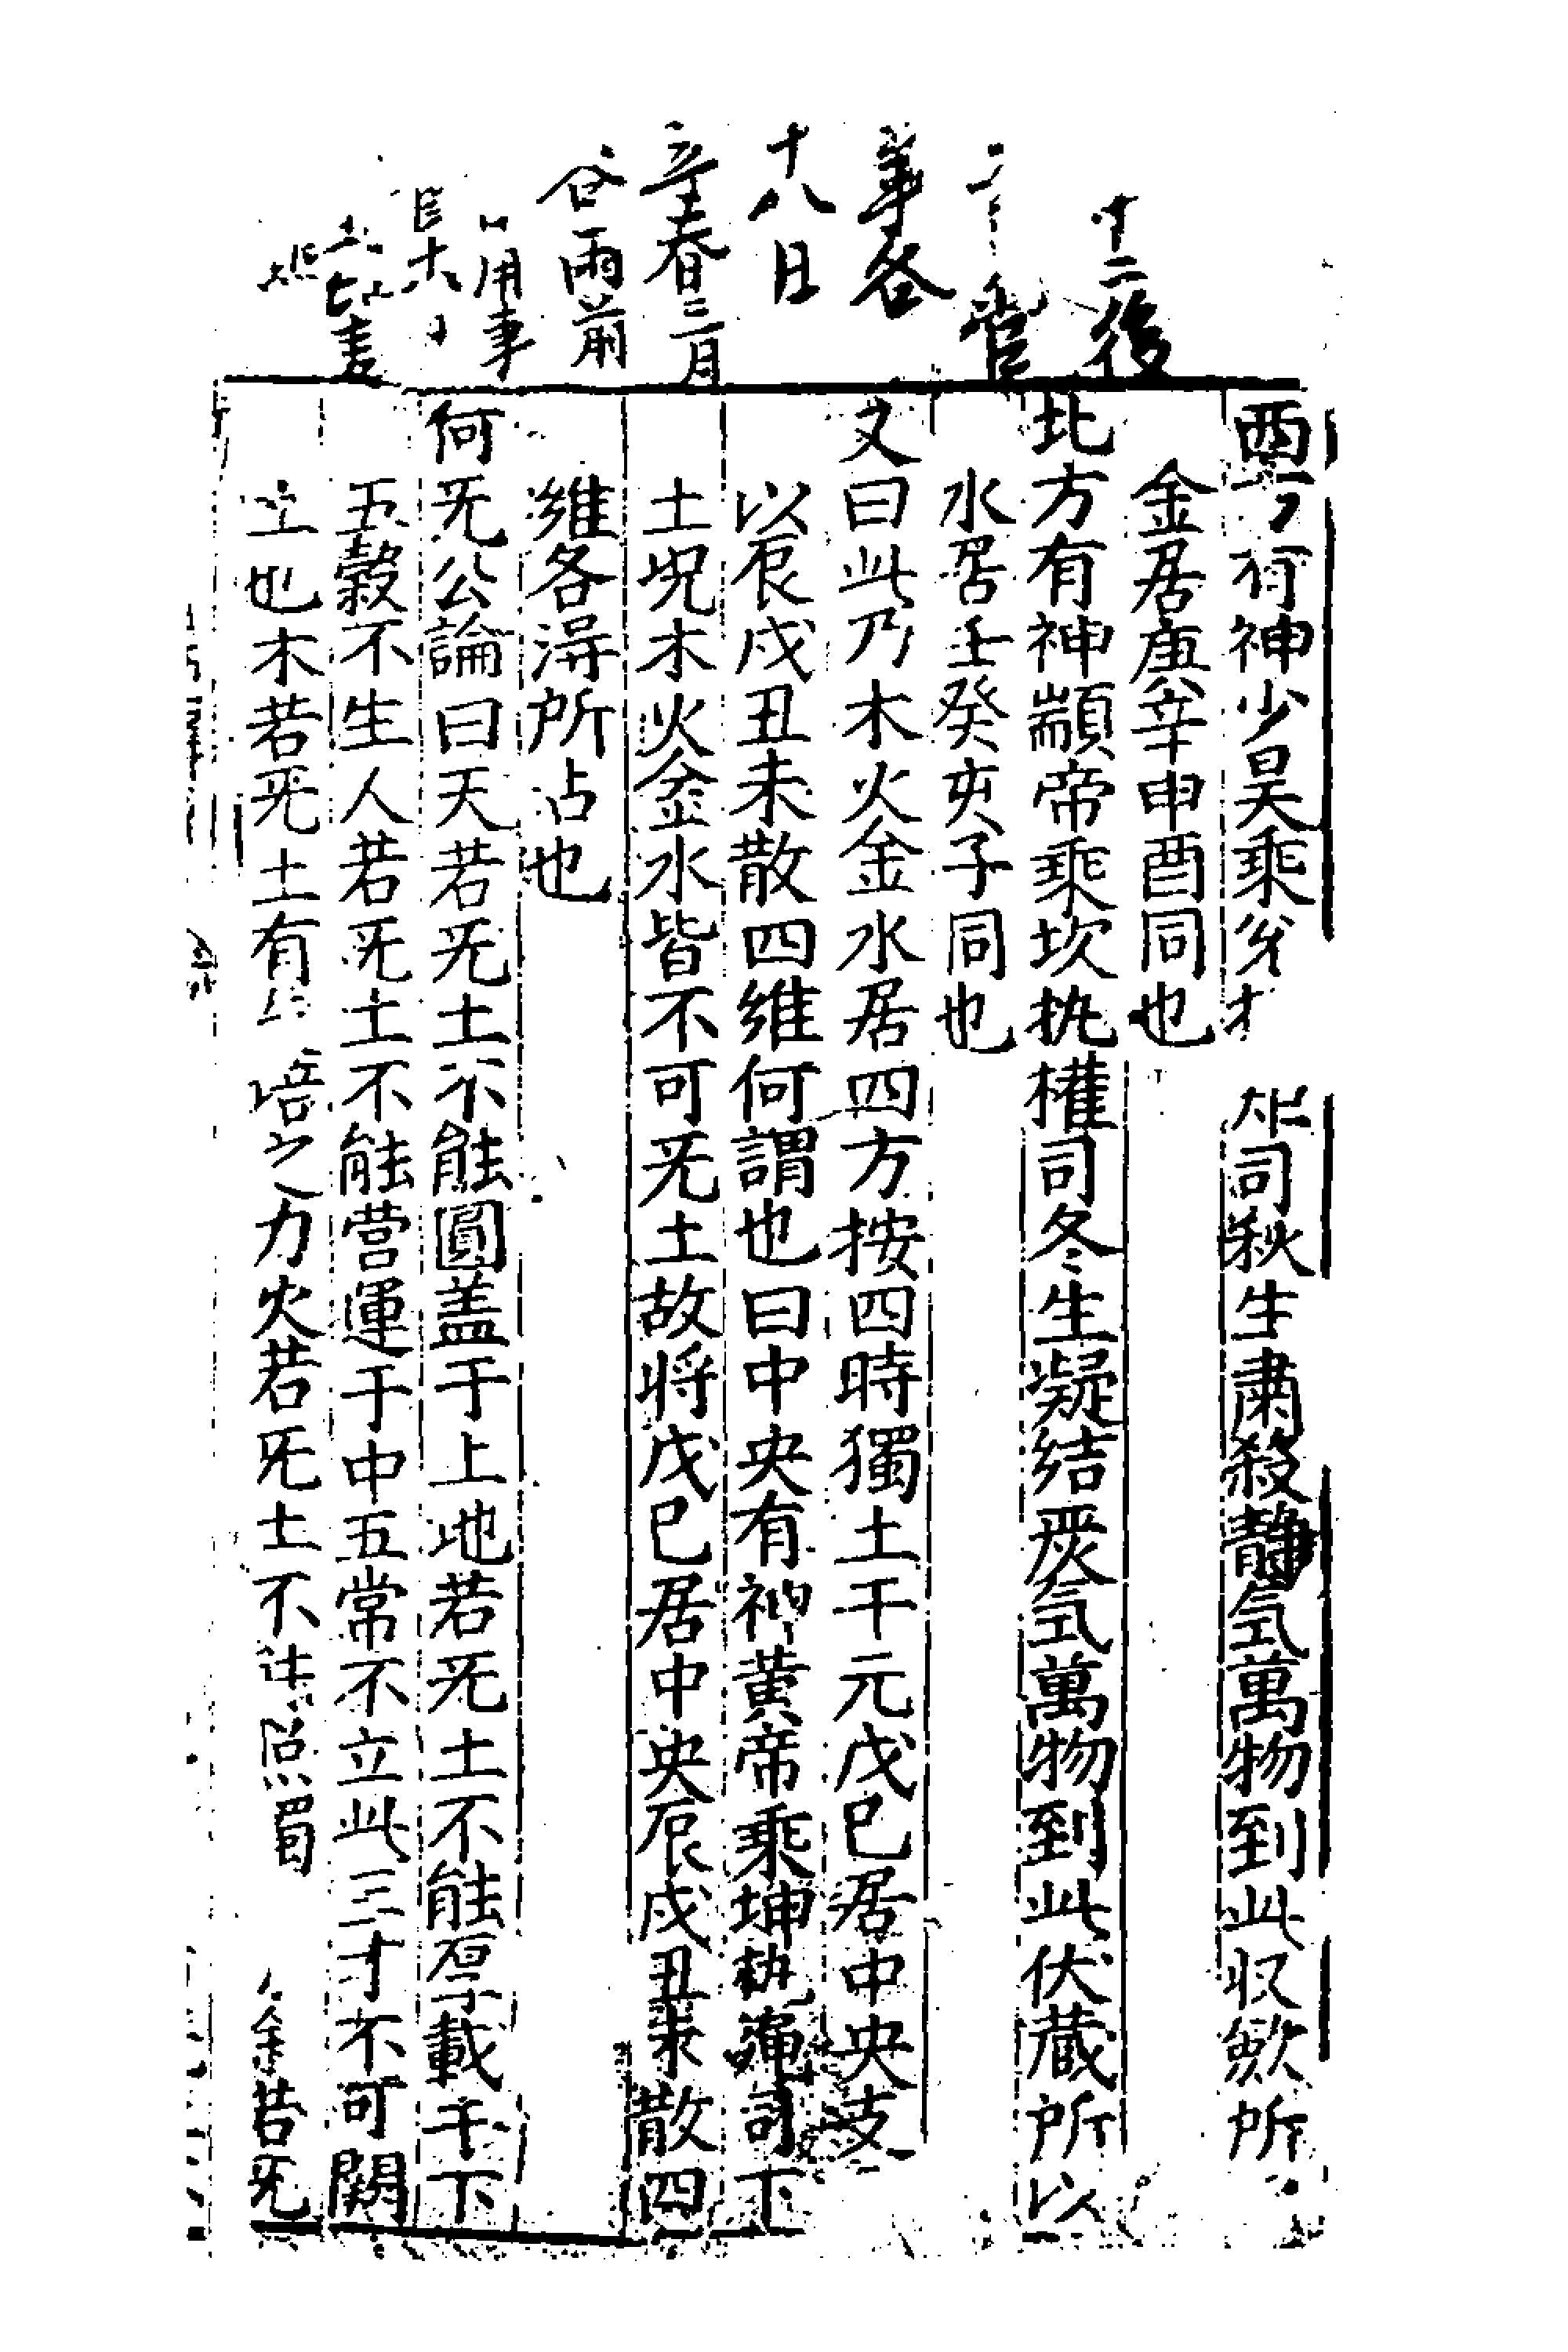 十二後
管
事各
十八日
辛春三月
谷雨前
用事
西方有神少昊乘兊司秋生肅殺静氣萬物到此収歛所
金居庚辛申酉同也
北方有神顓帝乘坎执權司冬生凝结嚴氣萬物到此伏藏所以
水居壬癸亥子同也
又曰此乃木火金水居四方按四時獨土干元戊巳居中央支
以辰戌丑未散四维何謂也曰中央有神黄帝乘坤执繩司下
土况木火金水皆不可旡土故将戊巳居中央辰戌丑未散四
维各淂所占也
何旡公論曰天若旡土不能圓盖于上地若旡土不能厚載于下
五穀不生人若旡土不能营運于中五常不立此三才不可闕
土也木若旡土有培之力火若旡土不照若旡